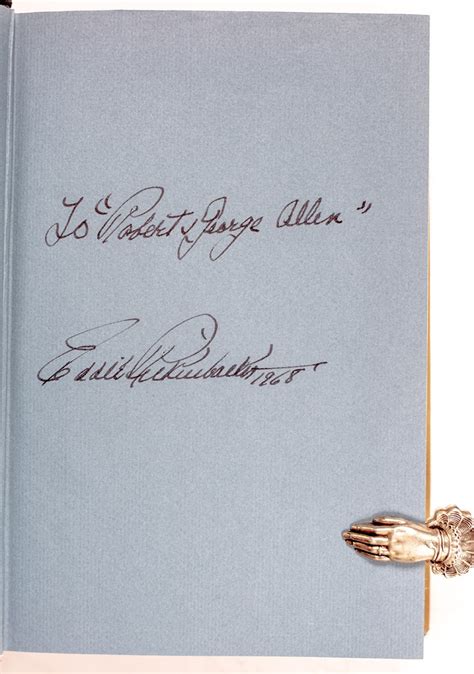 To "Robert & George Allen"
Eddie Rickenbacker 1968